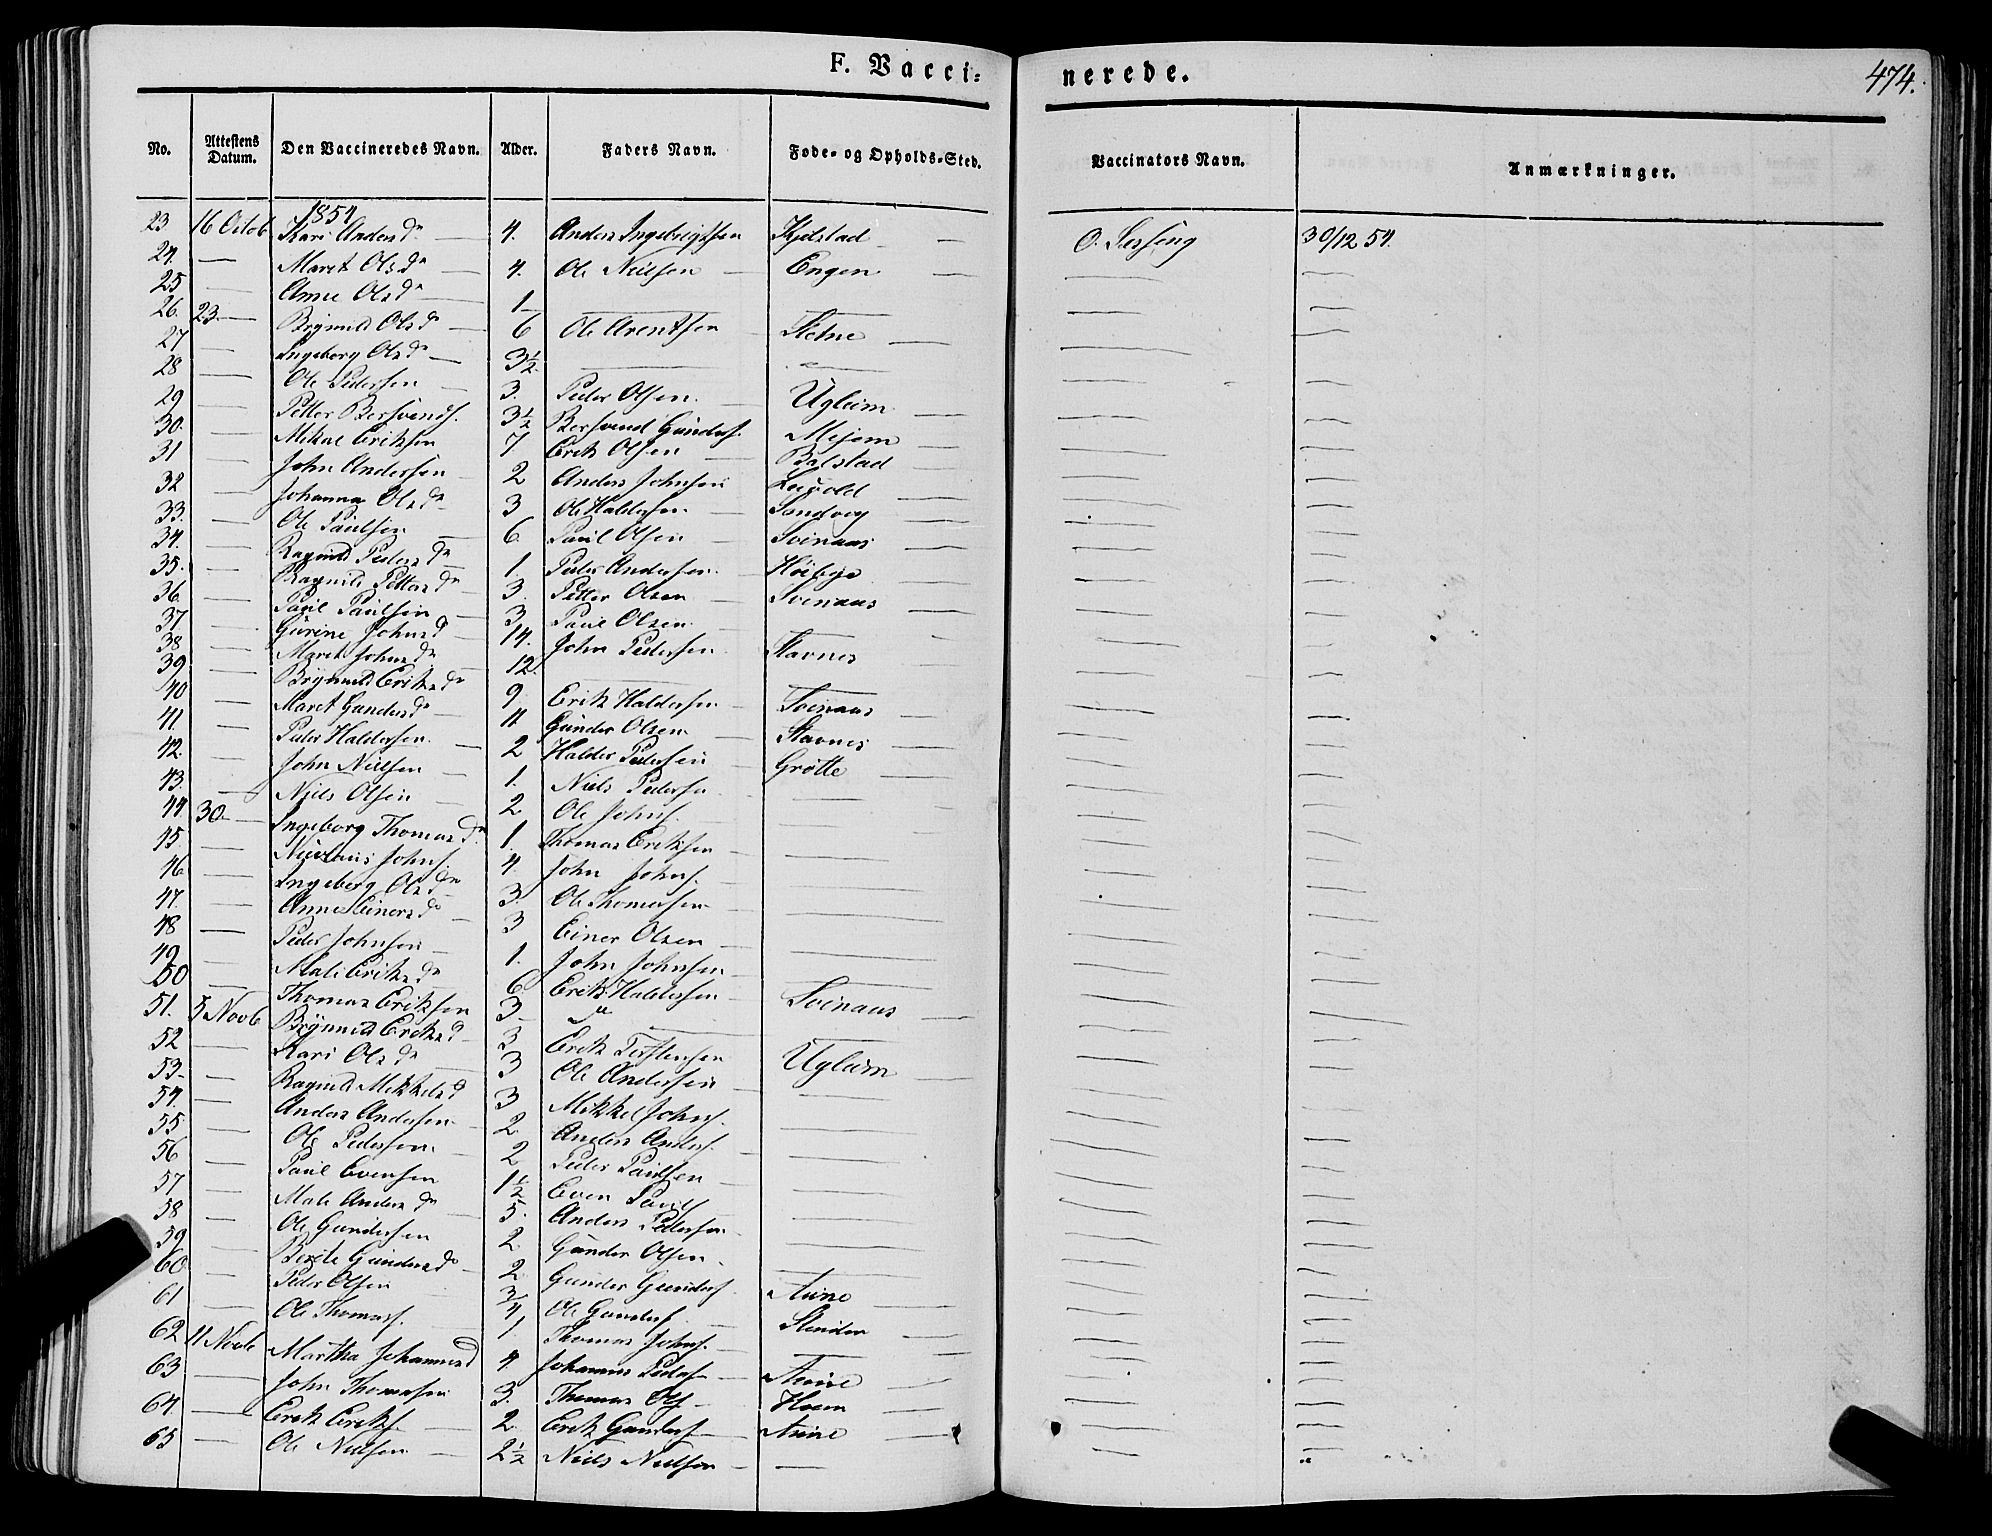 F. Vacci=
nerede.
474.
No. Attestens Datum. Den Vaccineredes Navn. Alder. Faders Navn. Føde- og Opholds-Sted. Vaccinators Navn. Anmærkninger.
1854
23 16 Octob Kari Andersdr 4. Anders Ingebrigtsen Kjelstad — 30/12 54.
24. — Maret Olsdr — 4. Ole Nielsen — Engen —
25 — Anne Olsdr — 1 —
26. 23. — Brynild Olsdr — 6 Ole Arentsen
27 — Ingeborg Olsdr — 3½ —
28 — Ole Pedersen — 3. Peder Olsen. — Uglem —
29 — Petter Bersvends. 3½ Bersvend Gunders. Mijem —
30. — Mikal Eriksen 7 Erik Olsen — Balstad —
31 — John Andersen 2 Anders Johnsen
32 — Johanna Olsdr 3 Ole Haldorsen — Sandvig —
33. — Ole Paulsen — 6 Paul Olsen — Svinaas —
34. — Ragnild Pedersdr 1. Peder Andersen. Høibye —
35. — Ragnild Pettersdr 3. Petter Olsen — Svinaas —
36. — Paul Paulsen — 3 Paul Olsen. —
37. — Gurine Johnsd 14. John Pedersen Stavnes —
38 — Maret Johnsdr 12. —
39 — Brynild Eriksdr 9 Erik Haldorsen — Svinaas —
40 — Maret Gundersdr — 11 Gunder Olsen — Stavnes —
41. — Peder Haldorsen. — 2 Haldor Pedersen Grøtte —
42. — John Nielsen — 1. Niels Pedersen —
43. — Niels Olsen — 2 Ole Johns. —
44 30. — Ingeborg Thomasdr 1. Thomas Eriksen —
45 — Johns. 4. John Johns. —
46 — Ingeborg Olsdr 3. Ole Thomesen —
47. — Anne Einersdr — 3 Einer Olsen —
48 — Peder Johnsen — 1. John Johnsen —
49 — Mali Eriksdr 6. Erik Haldorsen Svinaas —
50 — Thomas Eriksen 3 —
51. 5 Novb Brynild Eriksd 3 Erik Uglem —
52 — Kari Olsdr 3 Ole Andersen —
53. — Ragnild Mikkelsd 3 Mikkel Johns. —
54. — Anders Andersen — 2 Anders Anders. —
55 — Ole Pedersen — 2 Peder Paulsen —
56 — Paul Evensen 1½ Even Pauls —
57 — Mali Andersdr — 5. Anders Pedersen —
58 — Ole Gundersen 2. Gunder Olsen —
59 — Berite Gundersdr 2 Gunder Gunders. Aune —
60 — Peder Olsen ¾ Ole Gunders —
61 — Ole Thomass. 1. Thomas Johns. —
62 11 Novb Martha Johannesd 4 Johannes Peders — Aune —
63 — John Thomasen 3. Thomas Ols —
64. — Erik Eriks. — 2. Erik Gunders — Aune —
65 — Ole Nielsen — 2½ Niels Nielsen — —